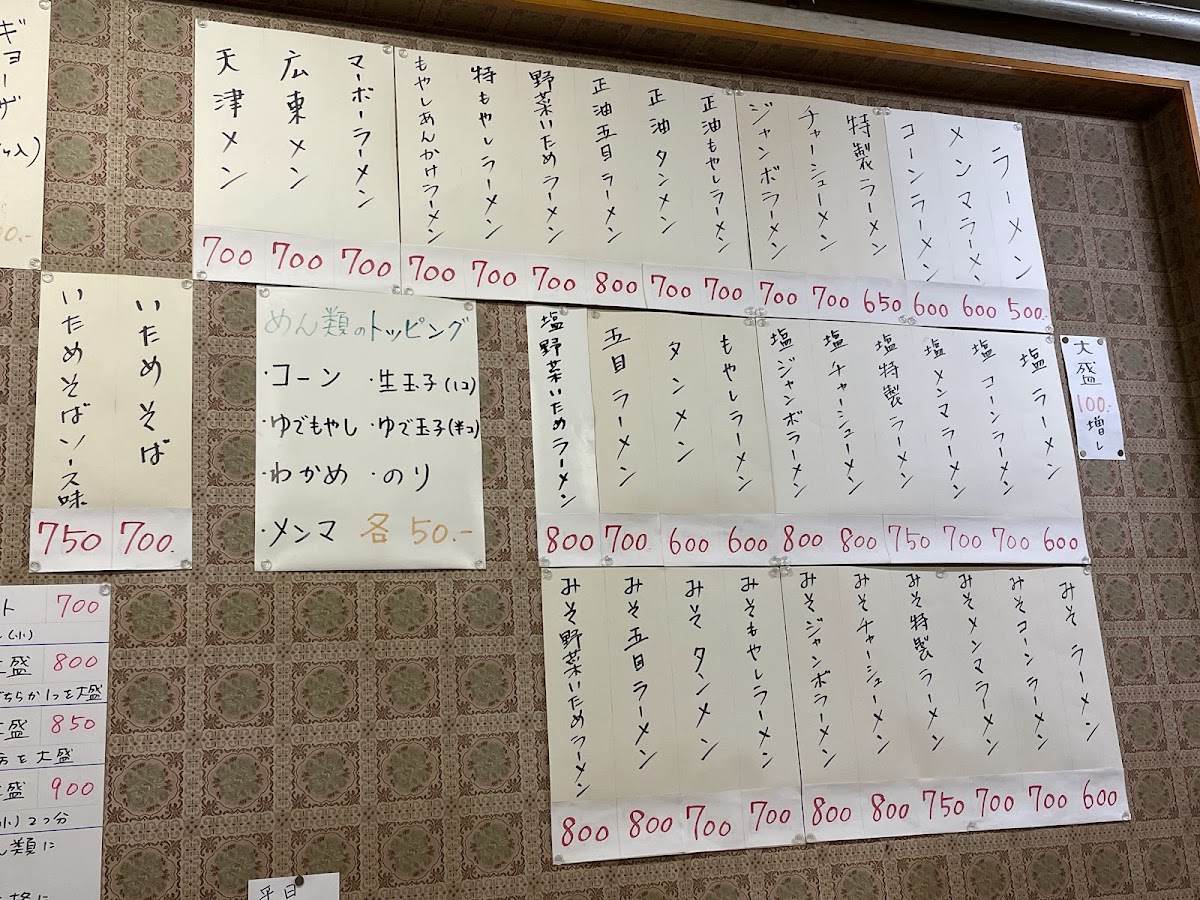 ラーメン 500.-
メンマラーメン 600
コーンラーメン 600
特製ラーメン 650
チャーシューメン 700
ジャンボラーメン 700
正油もやしラーメン 700
正油タンメン 700
正油五目ラーメン 800
野菜いためラーメン 700
特もやしラーメン 700
もやしあんかけラーメン 700
マーボーラーメン 700
広東メン 700
天津メン 700
ギョーザ
ヶ入)
0.-
大盛 100.-増し
塩ラーメン 600
塩コーンラーメン 700
塩メンマラーメン 700
塩特製ラーメン 750
塩チャーシューメン 800
塩ジャンボラーメン 800
もやしラーメン 600
タンメン 600
五目ラーメン 700
塩野菜いためラーメン 800
めん類のトッピング
・コーン ・生玉子(1コ)
・ゆでもやし ・ゆで玉子(半コ)
・わかめ ・のり
・メンマ 各 50.-
いためそば 700.
いためそばソース味 750
みそラーメン 600
みそコーンラーメン 700
みそメンマラーメン 700
みそ特製ラーメン 750
みそチャーシューメン 800
みそジャンボラーメン 800
みそもやしラーメン 700
みそタンメン 700
みそ五目ラーメン 800
みそ野菜いためラーメン 800
ト 700
(小)
盛 800
ちらか1つを大盛
盛 850
方を大盛
盛 900
小)2つ分
ん類に
平日